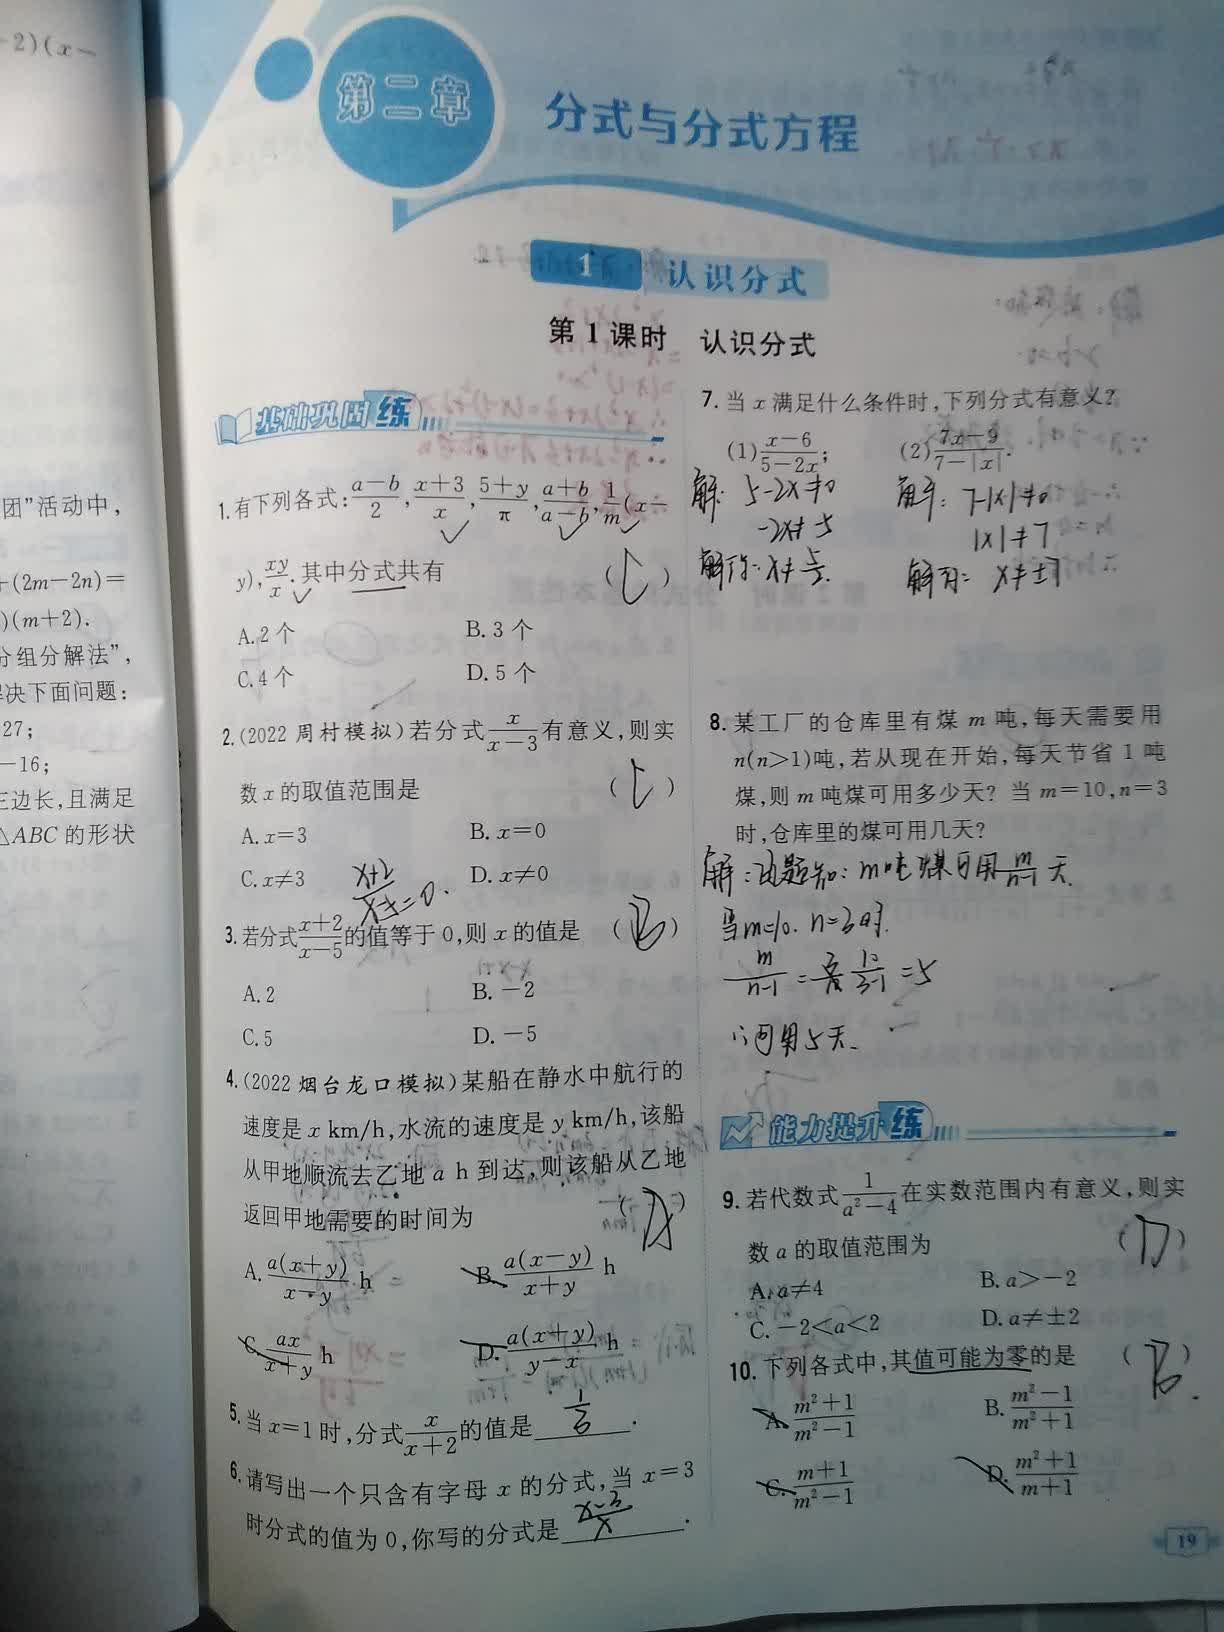 -2)(x-
第二章
分式与分式方程
1 认识分式
第1课时 认识分式
团”活动中,
+(2m-2n)=
)(m+2).
分组分解法”,
决下面问题:
27;
-16;
三边长,且满足
△ABC的形状
基础巩固练
1.有下列各式:(a-b)/2,(x+3)/x,(5+y)/π,(a+b)/(a-b),1/m(x-
y),xy/x.其中分式共有 (C)
A.2个 B.3个
C.4个 D.5个
2.(2022周村模拟)若分式x/(x-3)有意义,则实
数x的取值范围是 (C)
A.x=3 B.x=0
C.x≠3 D.x≠0
3.若分式(x+2)/(x-5)的值等于0,则x的值是 (B)
A.2 B.-2
C.5 D.-5
4.(2022烟台龙口模拟)某船在静水中航行的
速度是x km/h,水流的速度是y km/h,该船
从甲地顺流去乙地a h到达,则该船从乙地
返回甲地需要的时间为 (A)
A.a(x+y)/(x-y) h B.a(x-y)/(x+y) h
C.ax/(x+y) h D.a(x+y)/(y-x) h
5.当x=1时,分式x/(x+2)的值是 1/3 .
6.请写出一个只含有字母x的分式,当x=3
时分式的值为0,你写的分式是 (x-3)/x .
7.当x满足什么条件时,下列分式有意义?
(1)(x-6)/(5-2x); (2)(7x-9)/(7-|x|).
解: 5-2x≠0 解: 7-|x|≠0
-2x≠-5 |x|≠7
解得: x≠5/2 解得: x≠±7
8.某工厂的仓库里有煤m吨,每天需要用
n(n>1)吨,若从现在开始,每天节省1吨
煤,则m吨煤可用多少天?当m=10,n=3
时,仓库里的煤可用几天?
解:由题知: m吨煤可用m/(n-1)天.
当m=10. n=3时.
m/(n-1) = 10/(3-1) =5
∴可用5天.
能力提升练
9.若代数式1/(a²-4)在实数范围内有意义,则实
数a的取值范围为 (D)
A.a≠4 B.a>-2
C.-2<a<2 D.a≠±2
10.下列各式中,其值可能为零的是 (B)
A.(m²+1)/(m²-1) B.(m²-1)/(m²+1)
C.(m+1)/(m²-1) D.(m²+1)/(m+1)
19